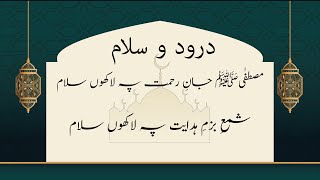 درود و سلام
مصطفٰی ﷺ جانِ رحمت پہ لاکھوں سلام
شمعِ بزمِ ہدایت پہ لاکھوں سلام